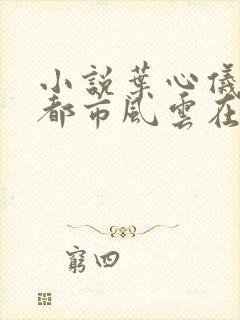 小說葉心儀
都市風雲在
窮四